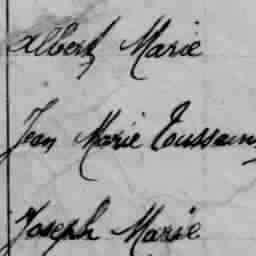 Albert Marie
Jean Marie Toussain
Joseph Marie